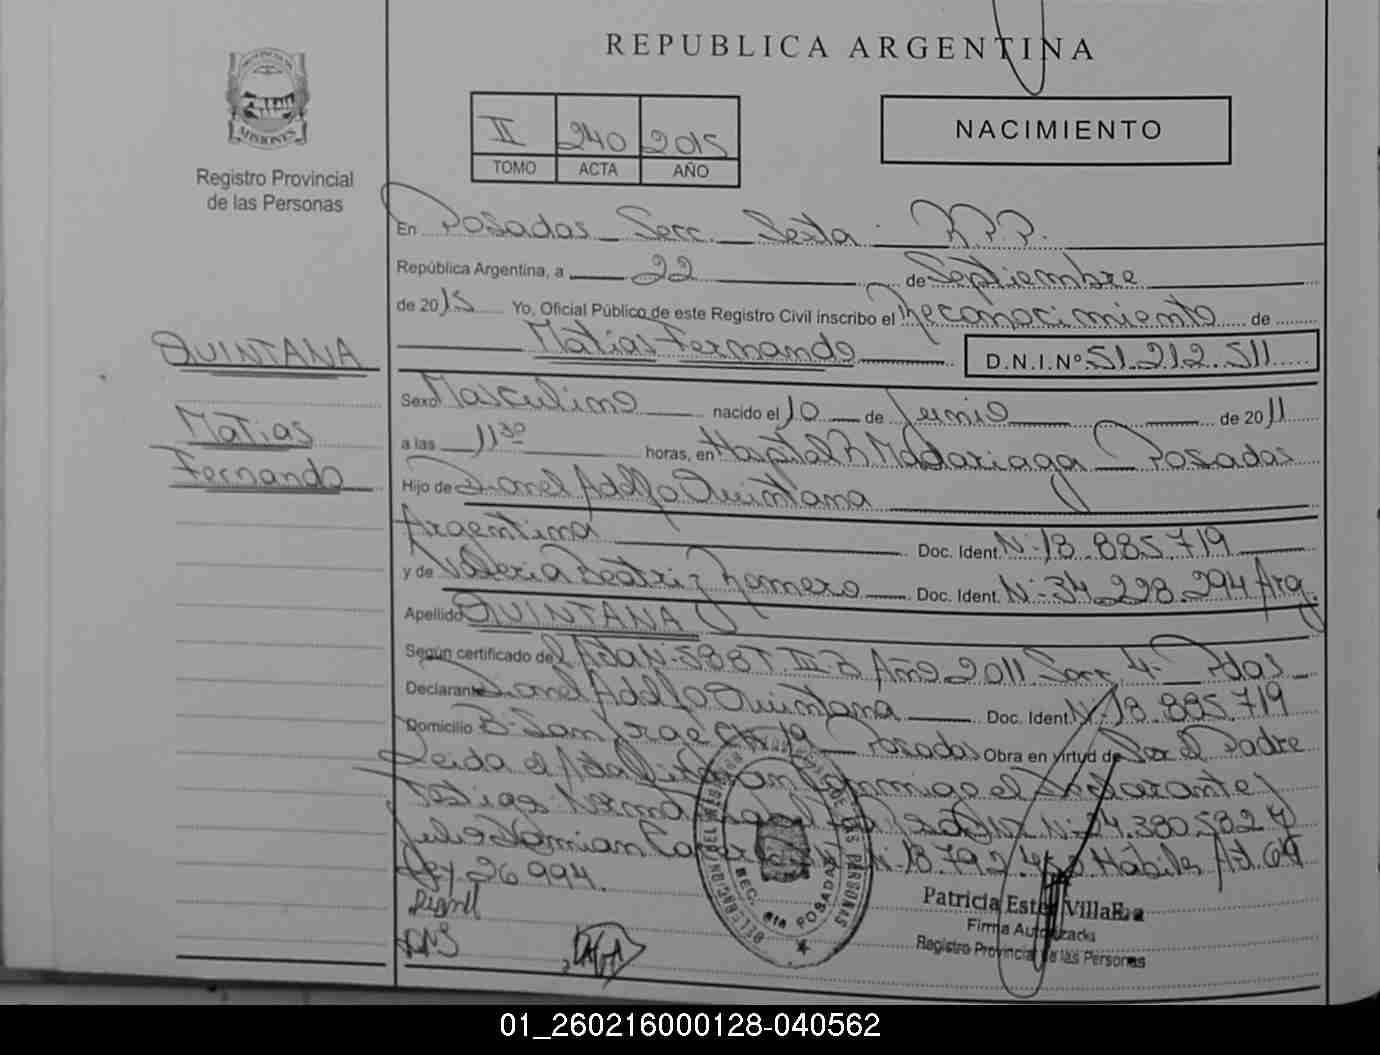 REPUBLICA ARGENTINA
PROVINCIA DE
MISIONES
Registro Provincial
de las Personas
II 240 2015
TOMO ACTA AÑO
NACIMIENTO
En Posadas Secc. Sexta R.P.P.
República Argentina, a 22 de Septiembre
de 2015 Yo, Oficial Público de este Registro Civil inscribo el Reconocimiento de
Matias Fernando D.N.I.Nº 51.212.511
QUINTANA
Matias
Fernando
Sexo Masculino nacido el 10 de Junio de 2011
a las 11 30 horas, en Hospital R. Madariaga Posadas
Hijo de Lionel Adolfo Quintana
Argentina Doc. Ident. Nº 18.885.719
y de Valeria Beatriz Romero Doc. Ident. Nº 34.228.294 Arg.
Apellido QUINTANA
Según certificado del Acta Nº 588 T. III-B Año 2011 Secc 4- Pdas
Declarante Lionel Adolfo Quintana Doc. Ident. Nº 18.885.719
Domicilio Bº San Jorge Posadas Obra en virtud de Ser el Padre
Leida el Acta conmigo el Declarante
Testigos Nº 24.380.582 y
Julio Damian Nº 18.792. Habiles Art. 64
Ley 26994.
REGISTRO PROVINCIAL DE LAS PERSONAS
SEC. 6ta POSADAS
Patricia Ester Villalba
Firma Autorizada
Registro Provincial de las Personas
01_260216000128-040562